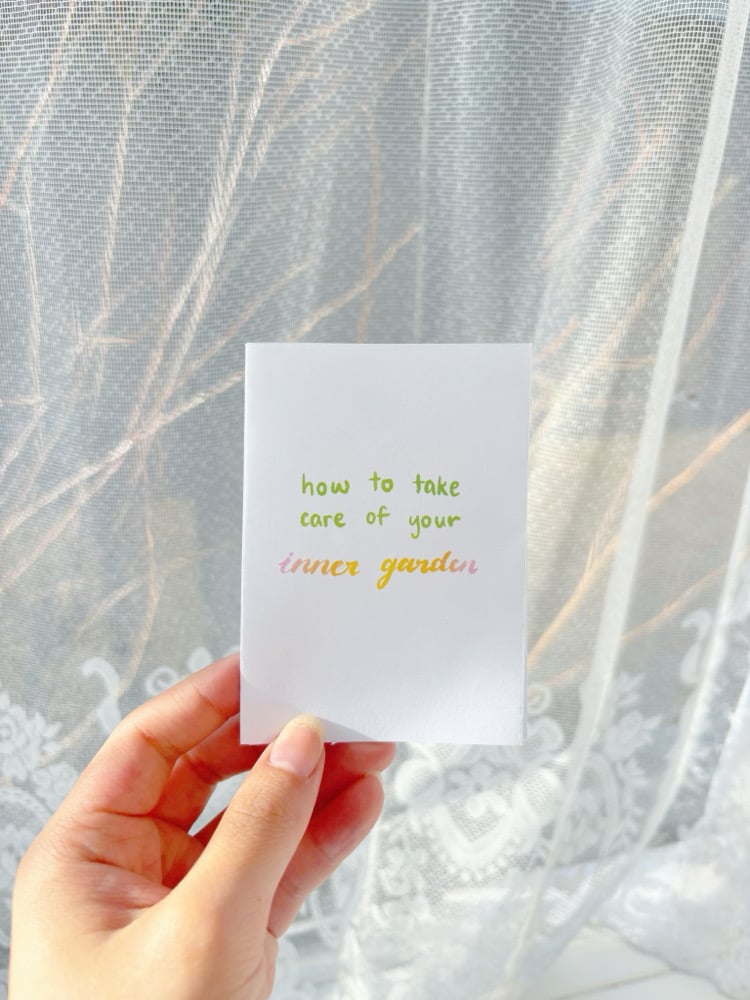 how to take
care of your
inner garden